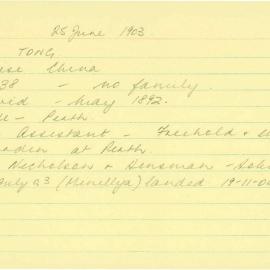 25 June 1903
TONG
ese China
38 - no family.
vid - May 1892.
- Perth
Assistant - Freehold &
arden at Perth
Nicholson & Hensman - Solic
July 93 (Minellya) landed 19-11-0